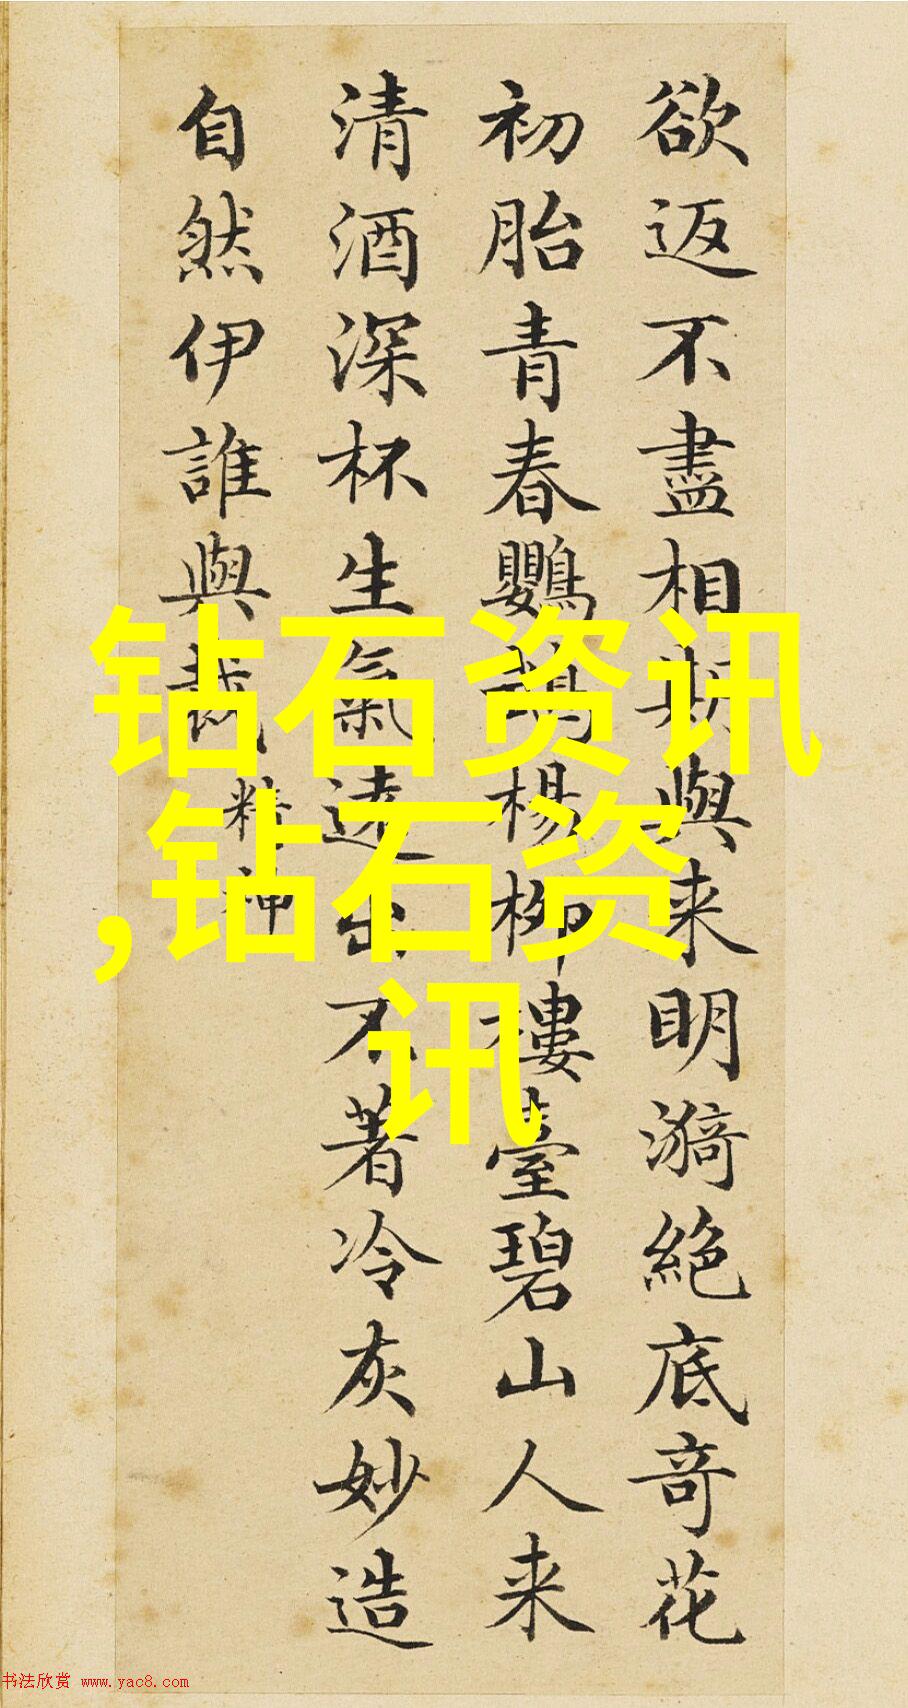 欲返不盡相期與来明漪絶底奇花
初胎青春鸚鵡楊柳樓臺碧山人来
清酒深杯生氣遠出不著冷灰妙造
自然伊誰與裁
精神
钻石资讯
,钻石资
讯
书法欣赏 www.yac8.com